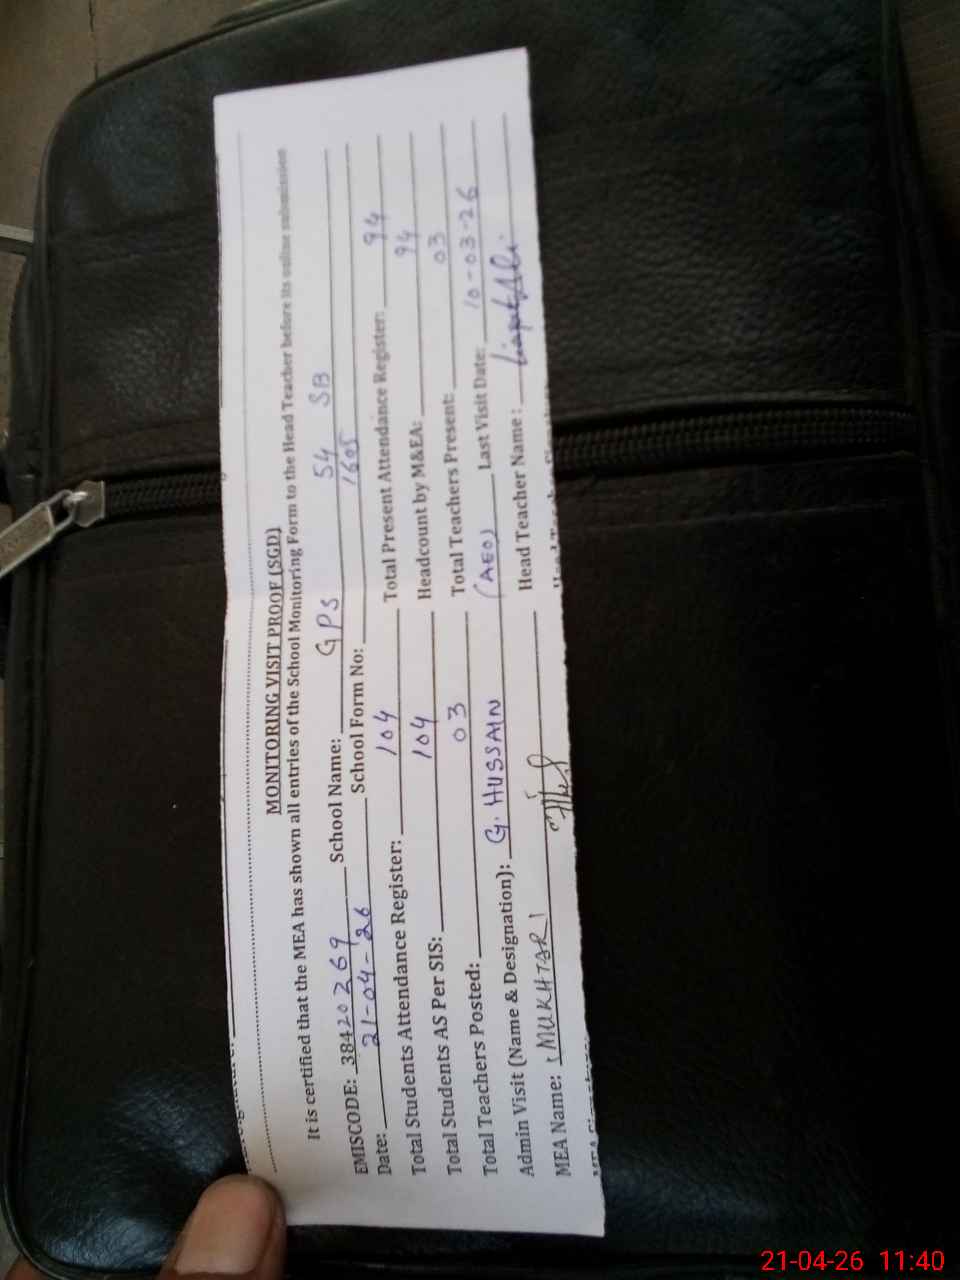 MONITORING VISIT PROOF (SGD)
It is certified that the MEA has shown all entries of the School Monitoring Form to the Head Teacher before its online submission
EMISCODE: 38420269 School Name: GPS 54 SB
Date: 21-04-26 School Form No: 1605
Total Students Attendance Register: 104 Total Present Attendance Register: 94
Total Students AS Per SIS: 104 Headcount by M&EA: 94
Total Teachers Posted: 03 Total Teachers Present: 03
Admin Visit (Name & Designation): G. HUSSAIN (AEO) Last Visit Date: 10-03-26
MEA Name: (MUKHTAR) Head Teacher Name: Liaqat Ali.
21-04-26 11:40